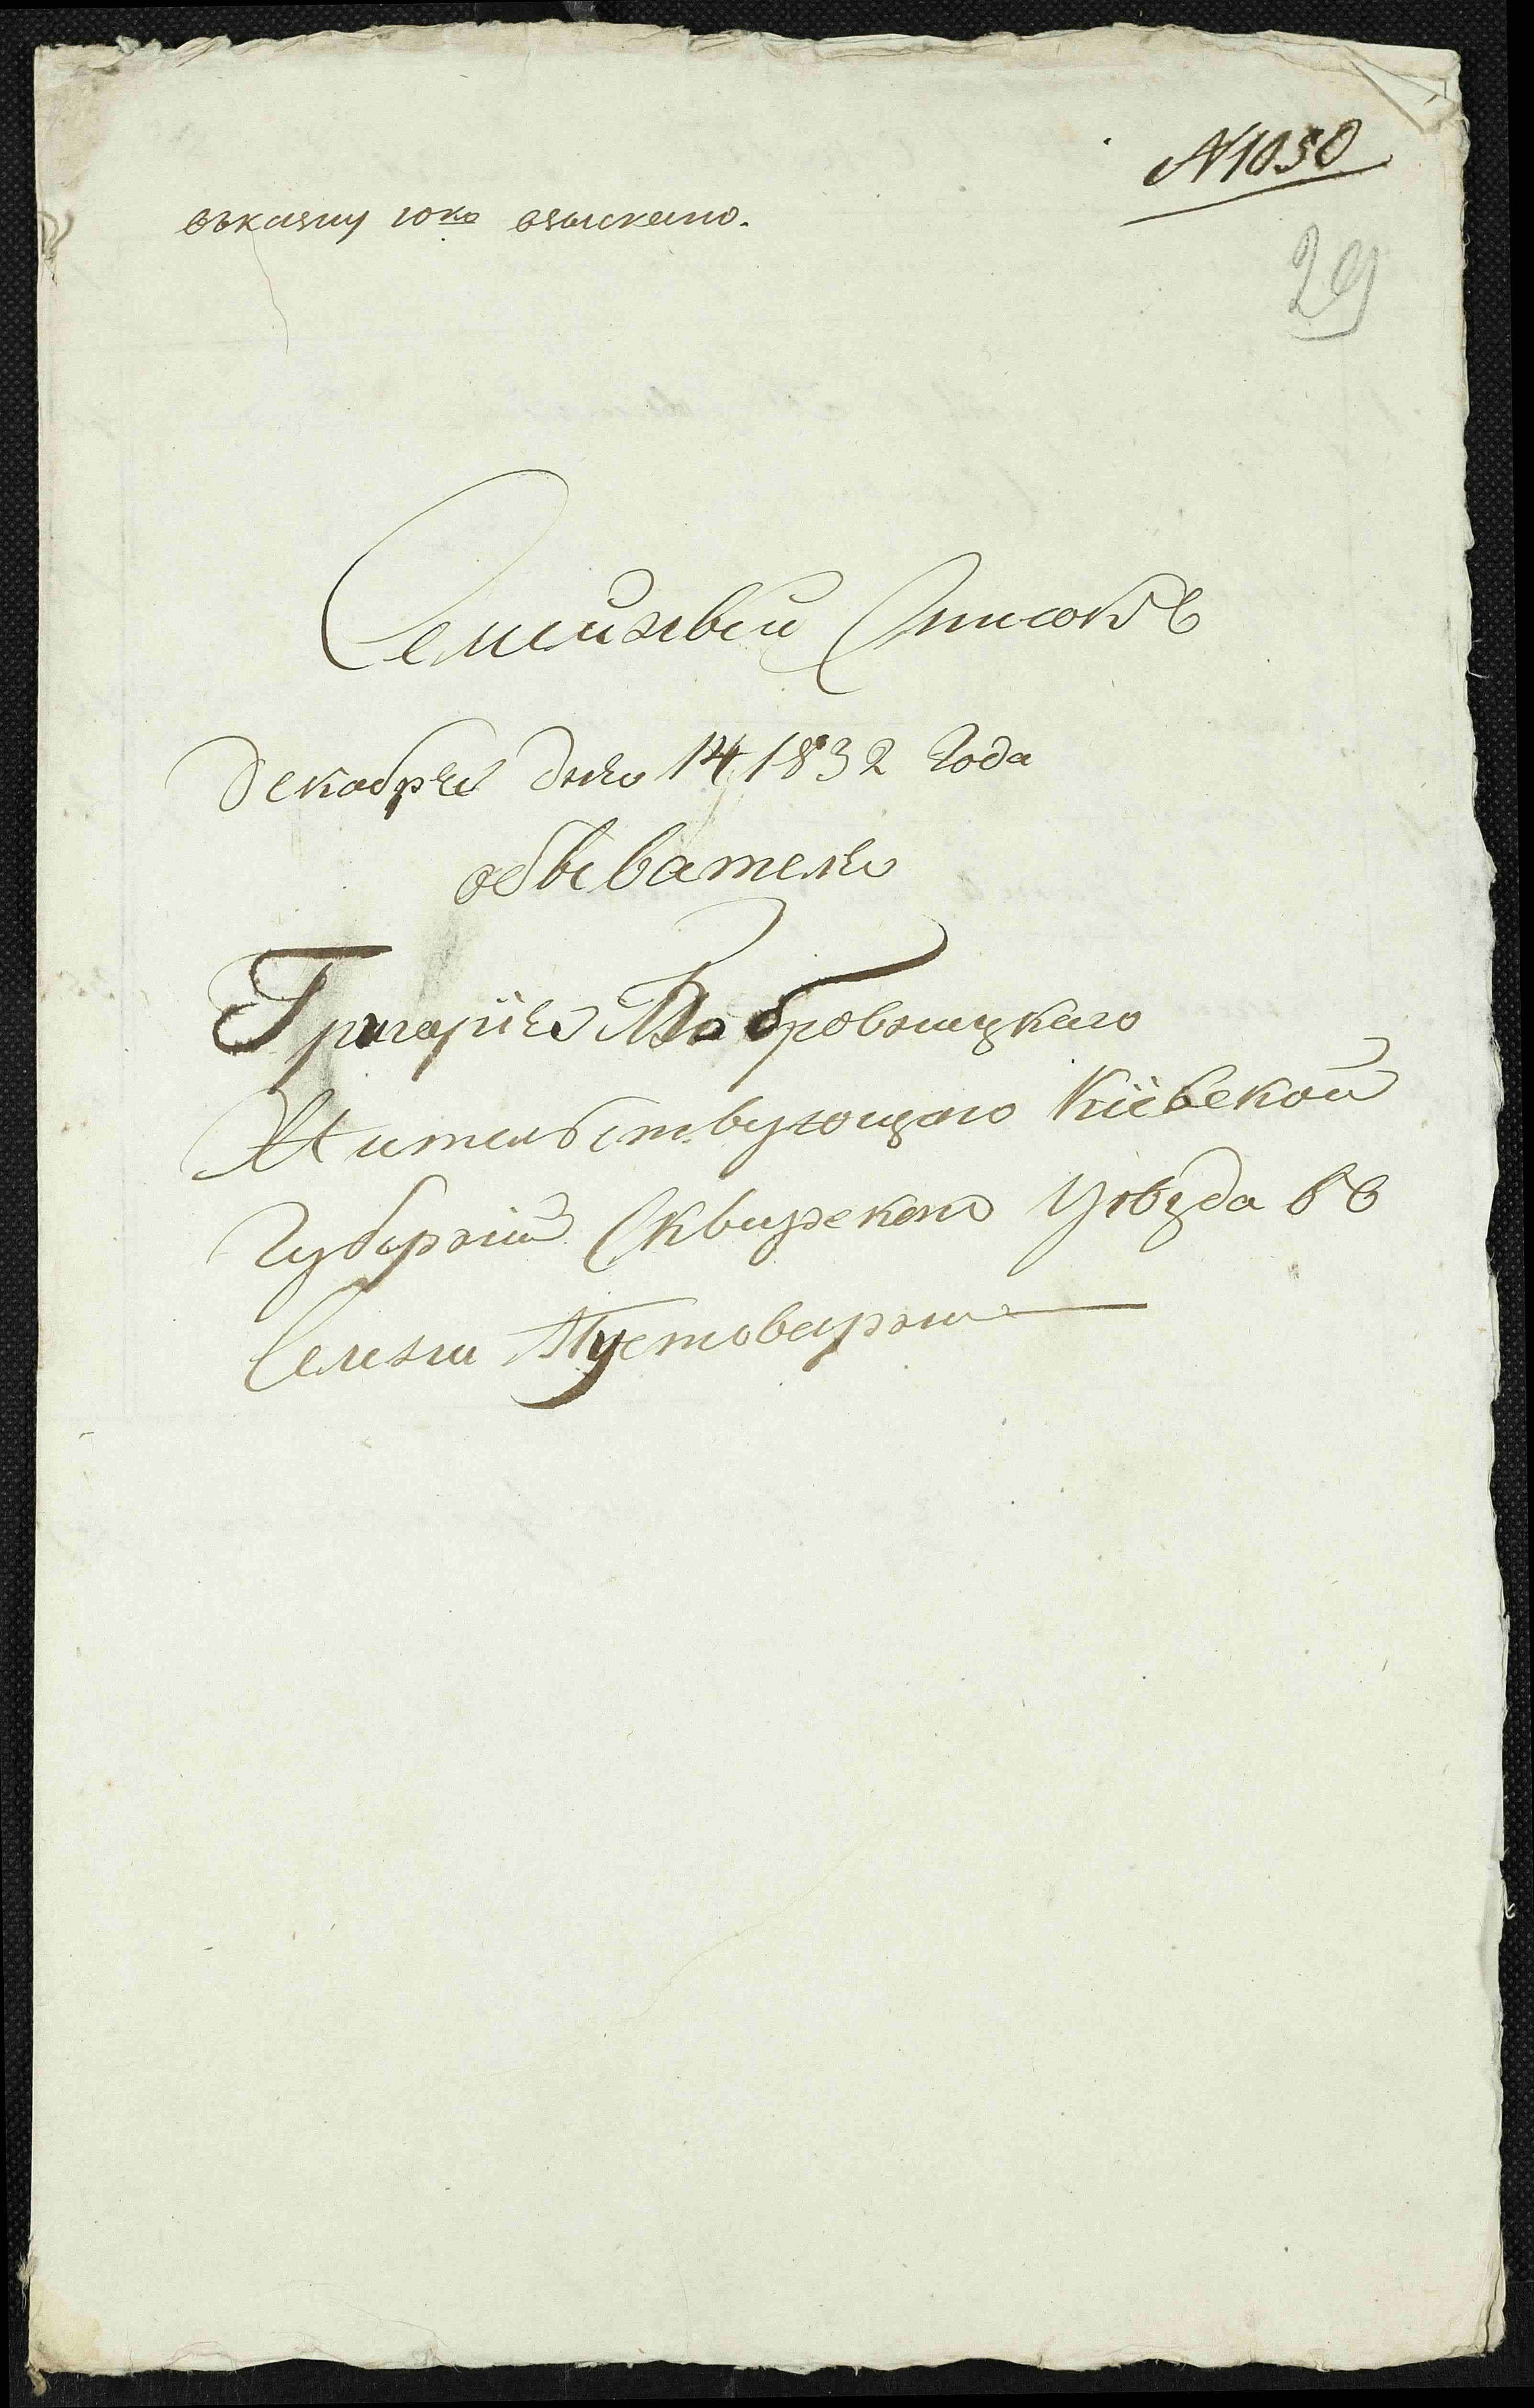 N 1050
въ казну 10 ко взыскано.
29
Семийный Списокъ
Декабря дня 14 1832 Года
обывателя
Григорiя Бобровницкаго
Жительствующаго Кiевской
Губернiи Сквирскаго Уѣзда въ
Селени Пустоварни